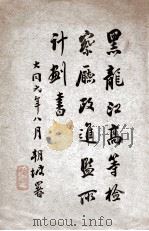 黑龍江高等檢
察廳改進監所
計劃書
大同元年八月 胡坡署